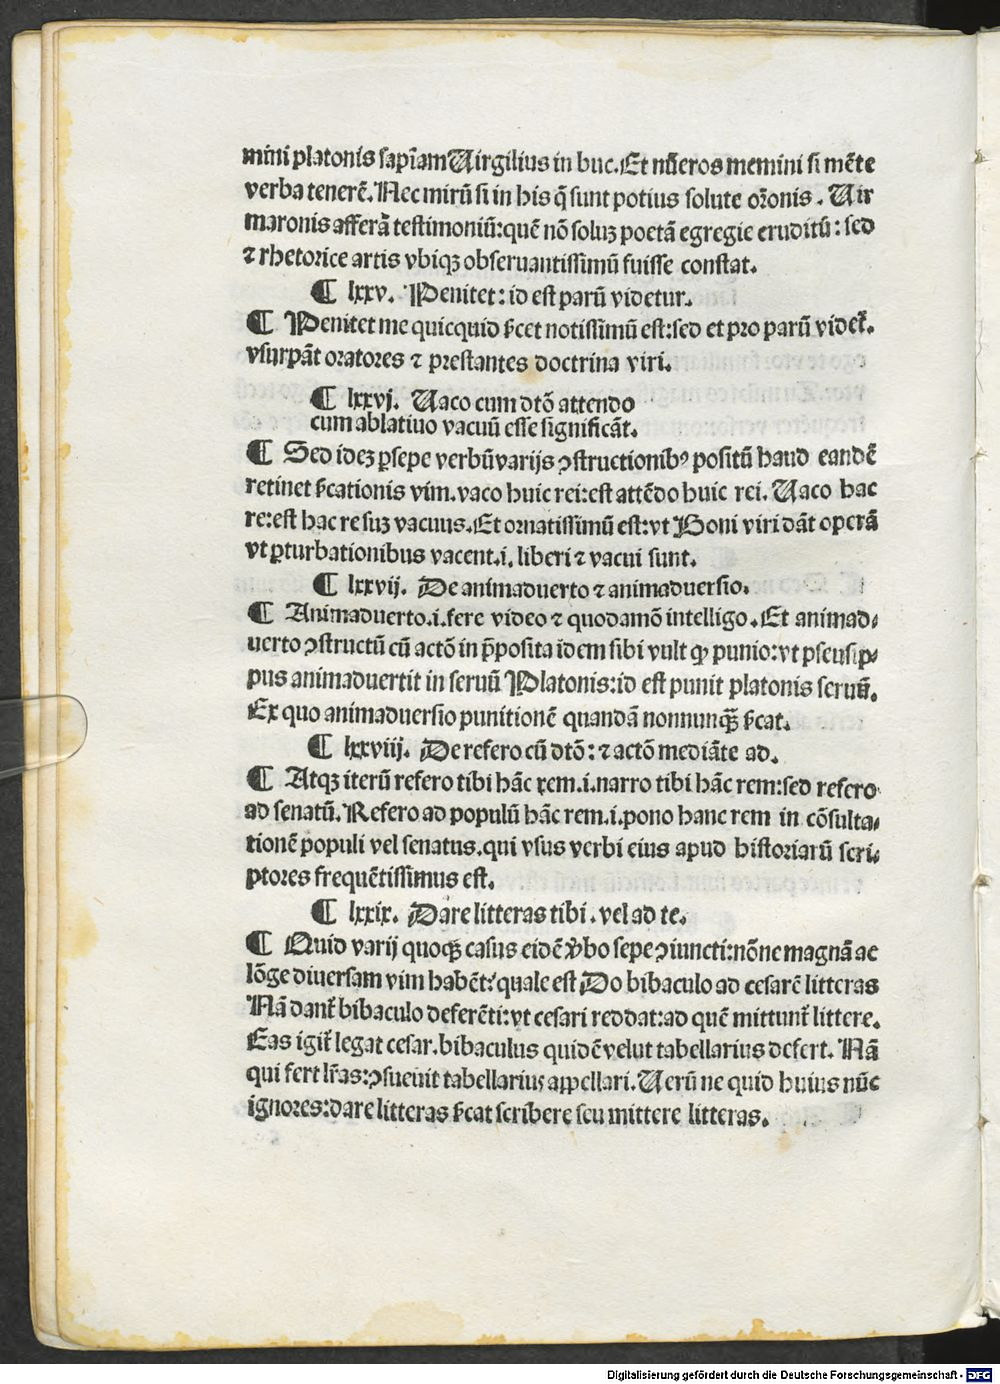 mini platonis sapīam Uirgilius in buc. Et nūeros memini si mēte
verba tenerē. Nec mirū si in his q̄ sunt potius solute oꝛōnis. Uir
maronis afferā testimoniū: quē nō soluꝫ poetā egregie eruditū: sed
⁊ rhetorice artis vbiqꝫ obseruantissimū fuisse constat.
¶ lxxv. Penitet: id est parū videtur.
¶ Penitet me quicquid s̄cet notissimū est: sed et pro parū videt᷑.
vsurpāt oratores ⁊ prestantes doctrina viri.
¶ lxxvj. Uaco cum dtō attendo
cum ablatiuo vacuū esse significāt.
¶ Sed ideꝫ ꝑsepe verbū varijs ꝯstructionibꝰ positū haud eandē
retinet s̄cationis vim. vaco huic rei: est attēdo huic rei. Uaco hac
re: est hac re suꝫ vacuus. Et ornatissimū est: vt Boni viri dāt operā
vt ꝑturbationibus vacent .i. liberi ⁊ vacui sunt.
¶ lxxvij. De animaduerto ⁊ animaduersio.
¶ Animaduerto .i. fere video ⁊ quodāmō intelligo. Et animad⸗
uerto ꝯstructū cū actō in p̄posita idem sibi vult qꝫ punio: vt pseusip⸗
pus animaduertit in seruū Platonis: id est punit platonis seruū.
Ex quo animaduersio punitionē quandā nonnunqꝫ̄ s̄cat.
¶ lxxviij. De refero cū dtō: ⁊ actō mediāte ad.
¶ Atqꝫ iterū refero tibi hāc rem .i. narro tibi hāc rem: sed refero
ad senatū. Refero ad populū hāc rem .i. pono hanc rem in cōsulta⸗
tionē populi vel senatus. qui vsus verbi eius apud historiarū scri⸗
ptores frequētissimus est.
¶ lxxix. Dare litteras tibi. vel ad te.
¶ Quid varij quoqꝫ casus eidē v̄bo sepe ꝯiuncti: nōne magnā ac
lōge diuersam vim habēt? quale est Do bibaculo ad cesarē litteras
Nā dant᷑ bibaculo deferēti: vt cesari reddat: ad quē mittunt᷑ littere.
Eas igit᷑ legat cesar. bibaculus quidē velut tabellarius defert. Nā
qui fert lr̄as: ꝯsueuit tabellarius appellari. Uerū ne quid huius nūc
ignores: dare litteras s̄cat scribere seu mittere litteras.
Digitalisierung gefördert durch die Deutsche Forschungsgemeinschaft - DFG